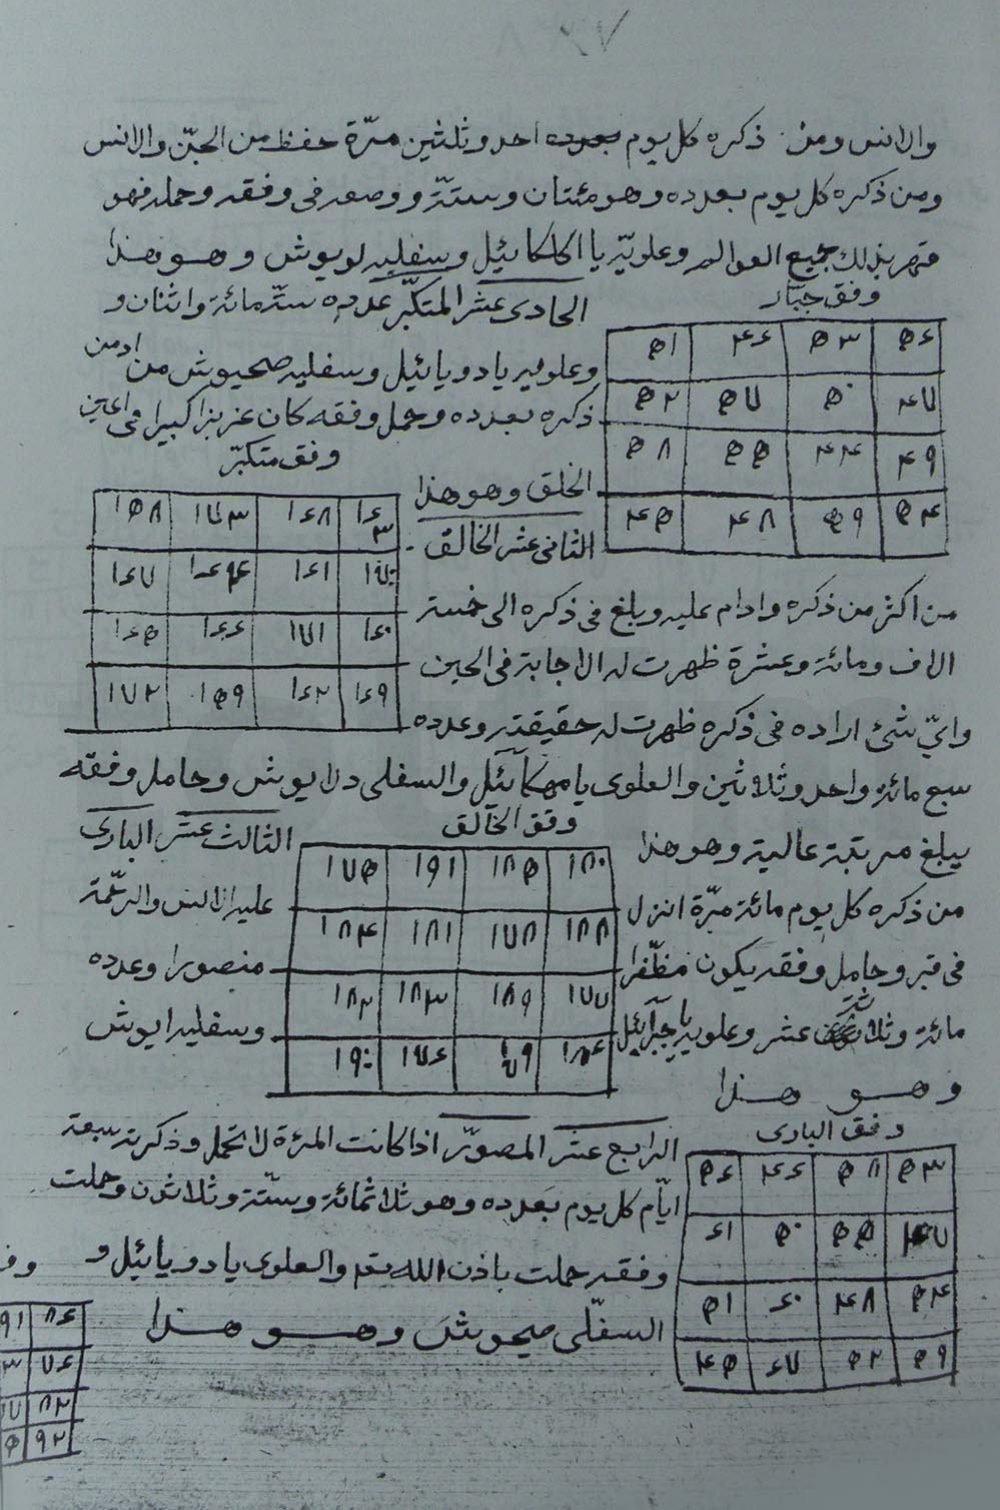 والانس ومن ذكره كل يوم بعدده احد وثلثين مرّة حفظ من الجنّ والانس
ومن ذكره كل يوم بعدده وهو مئتان وستّة ووضعه فى وفقه وحمله فهو
قهر بذلك جميع العوالم وعلويّه يا اكلكائيل وسفليه لويوش وهو هذا
وفق جبّار
٥٦ ٥٣ ٤٦ ٥١
٤٧ ٥٠ ٥٧ ٥٢
٤٩ ٤٤ ٥٥ ٥٨
٥٤ ٥٩ ٤٨ ٤٥
الحادى عشر المتكبّر عدده ستّمائة واثنان و
وعلويه يا دويائيل وسفليه صحيوش من
ذكره بعدده وحمل وفقه كان عزيزا كبيرا فى اعين
الخلق وهو هذا
وفق متكبّر
١٦٣ ١٦٨ ١٧٣ ١٥٨
١٦١ ١٦٤ ١٦٧
١٦٠ ١٧١ ١٦٦ ١٦٥
١٦٩ ١٦٢ ١٥٩ ١٧٢
الثانى عشر الخالق
من اكثر من ذكره وادام عليه ويلغ فى ذكره الى خمسة
الاف ومائة وعشرة ظهرت له الاجابة فى الحين
وايّ شئ اراده فى ذكره ظهرت له حقيقته وعدده
سبع مائة واحد وثلاثين والعلوى يا مهكائيل والسفلى دلايوش وحامل وفقه
يبلغ مرتبة عالية وهو هذا
وفق الخالق
١٨٠ ١٨٥ ١٩١ ١٧٥
١٨٨ ١٧٨ ١٨١ ١٨٤
١٧٧ ١٨٩ ١٨٣ ١٨٢
١٨٦ ١٧٩ ١٧٦ ١٩٠
الثالث عشر البارى
من ذكره كل يوم مائة مرّة انزل عليه الانس والرحمة
فى قبره وحامل وفقه يكون مظفّرا منصورا وعدده
مائة وثلاث عشر وعلويه يا جبرائيل وسفليه ايوش
وهو هذا
وفق البارى
٥٣ ٥٨ ٤٦ ٥٦
٤٧ ٥٥ ٥٠ ٦١
٥٤ ٤٨ ٦٠ ٥١
٥٩ ٥٢ ٦٧ ٤٥
الرابع عشر المصوّر اذا كانت المرئة لا تحمل وذكرته سبعة
ايّام كل يوم بعدده وهو ثلاثمائة وستّة وثلاثون وحملت
وفقه حملت باذن الله تع والعلوى يا دويائيل و
السفلى صحوش وهو هذا
وف
٨٦ ٩١
٧٦
٨٢
٩٢